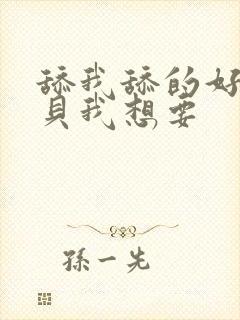 舔我舔的好
贝我想要
孫一先